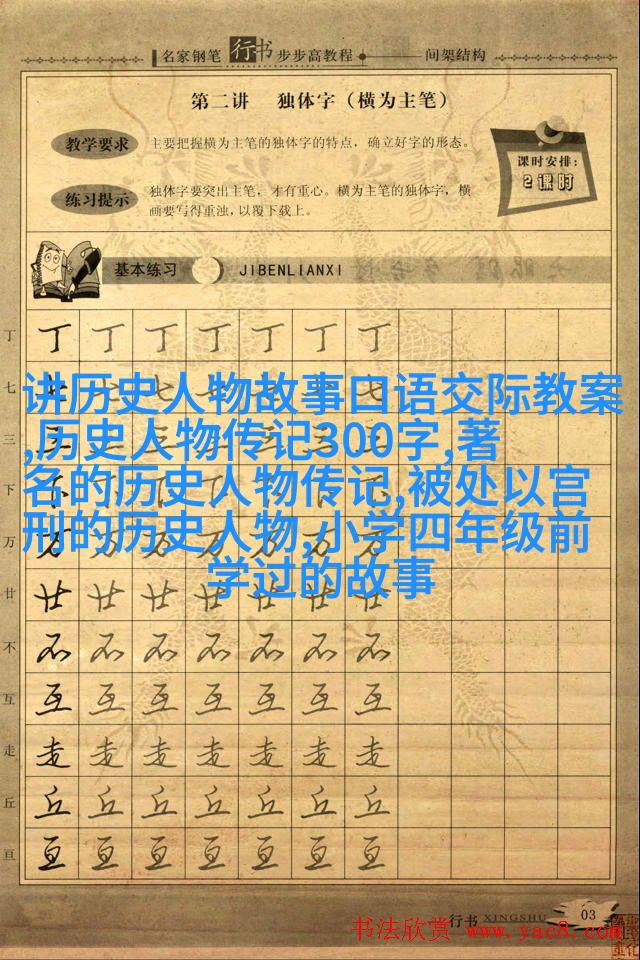 名家钢笔 行书 步步高教程 间架结构
第二讲 独体字（横为主笔）
教学要求
主要把握横为主笔的独体字的特点，确立好字的形态。
课时安排：
2课时
练习提示
独体字要突出主笔，才有重心。横为主笔的独体字，横
画要写得重浊，以覆下载上。
基本练习 JIBENLIANXI
丁 丁 丁 丁 丁 丁 丁 丁
讲历史人物故事口语交际教案
,历史人物传记300字,著
名的历史人物传记,被处以宫
刑的历史人物,小学四年级前
学过的故事
七
三
下
万
廿 廿 廿 廿 廿 廿 廿 廿
不 不 不 不 不 不 不 不
互 互 互 互 互 互 互 互
走 走 走 走 走 走 走 走
丘 丘 丘 丘 丘 丘 丘 丘
亘 亘 亘 亘 亘 亘 亘 亘
行书 XINGSHU 03
书法欣赏 www.yac8.com